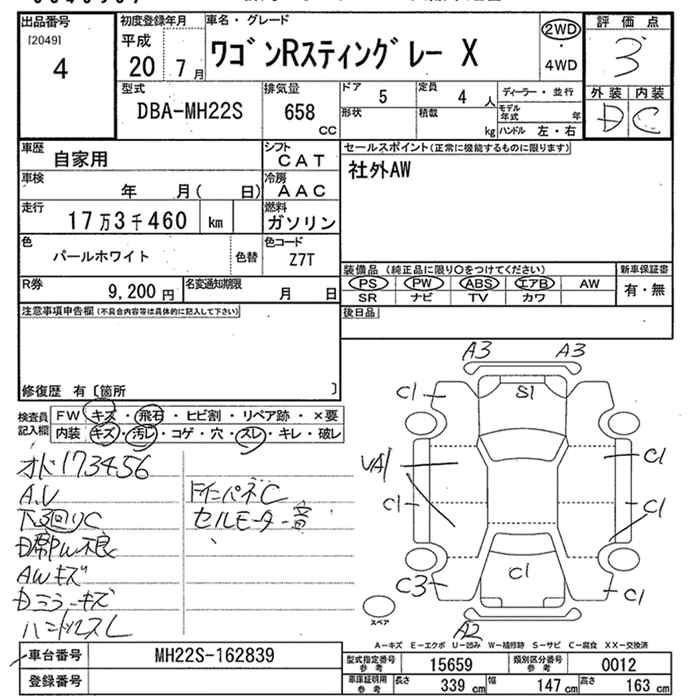 出品番号
[2049]
4
初度登録年月
平成
20 7月
車名・グレード
ワゴンRスティングレー X
2WD
・
4WD
評価点
3
外装 内装
D C
型式
DBA-MH22S
排気量
658
cc
ドア
5
定員
4 人
形状
積載
kg
ディーラー・並行
モデル年式 年
ハンドル 左・右
車歴
自家用
シフト
CAT
車検
年 月( 日)
冷房
AAC
走行
17万3千460 km
燃料
ガソリン
色
パールホワイト
色替
色コード
Z7T
R券
9,200 円
名変通知期限
月 日
セールスポイント(正常に機能するものに限ります)
社外AW
装備品 (純正品に限り○をつけてください)
PS PW ABS エアB AW
SR ナビ TV カワ
新車保証書
有・無
後日品
注意事項申告欄(不具合内容等は具体的に記入して下さい)
修復歴 有〔箇所 〕
検査員記入欄
FW キズ・飛石・ヒビ割・リペア跡・×要
内装 キズ・汚レ・コゲ・穴・スレ・キレ・破レ
オド173456
A.U
下回りC
AWキズ
Dミラーキズ
ハンドルスレ
セルモーター音
A3 A3
C1 S1 C1
UA1 C1
C1 C1
C1
C3 C1
A2
スペア
A-キズ E-エクボ U-凹み W-補修跡 S-サビ C-腐食 XX-交換済
車台番号
MH22S-162839
登録番号
型式指定番号 参考
15659
類別区分番号 参考
0012
車庫証明用 参考
長さ 339 cm
幅 147 cm
高さ 163 cm